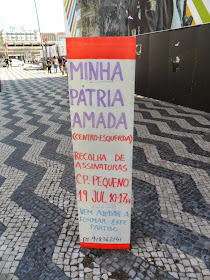 MINHA
PÁTRIA
AMADA
(CENTRO-ESQUERDA)
RECOLHA DE
ASSINATURAS
CP. PEQUENO
19 JUL. 10-13h
VEM AJUDAR A
FORMAR ESTE
PARTIDO